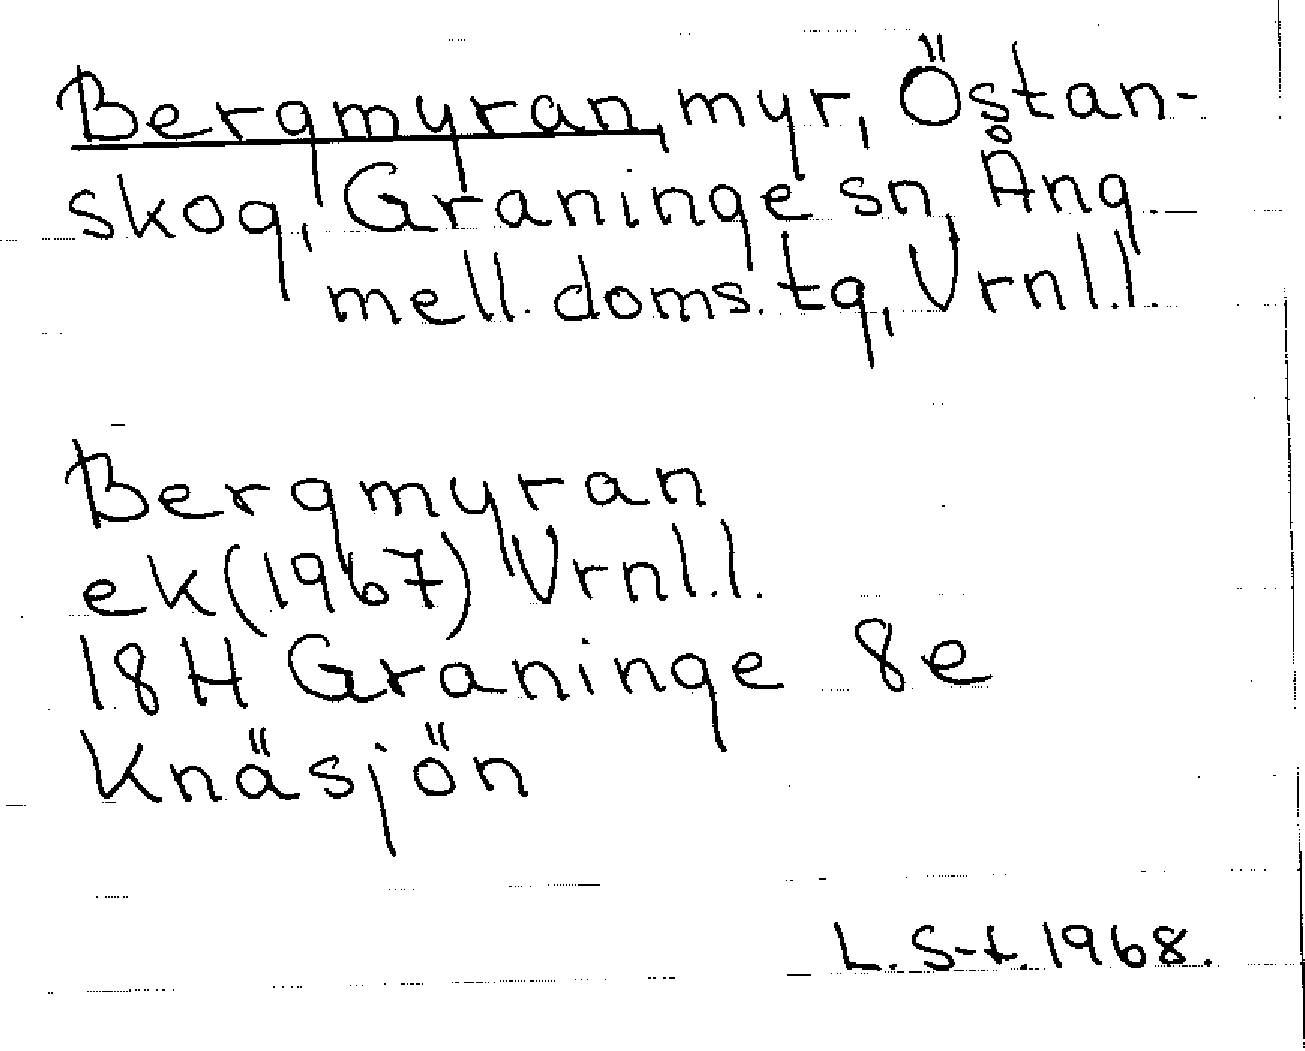 Bergmyran, myr, Östan-
skog, Graninge sn, Ång.
mell. doms. tg, Vrnl.l.
Bergmyran
ek (1967) Vrnl.l.
18H Graninge 8e
Knäsjön
L. S-t. 1968.